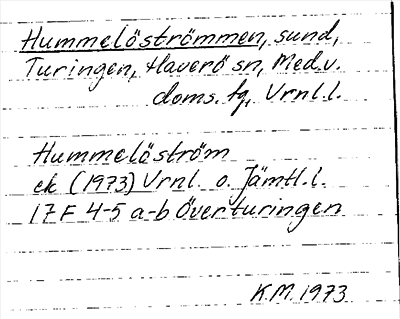 Hummelöströmmen, sund,
Turingen, Haverö sn, Med.v.
doms. tg, Vrnl.l.
Hummelöström
ek (1973) Vrnl. o. Jämtl.l.
17F 4-5 a-b Överturingen
K.M. 1973